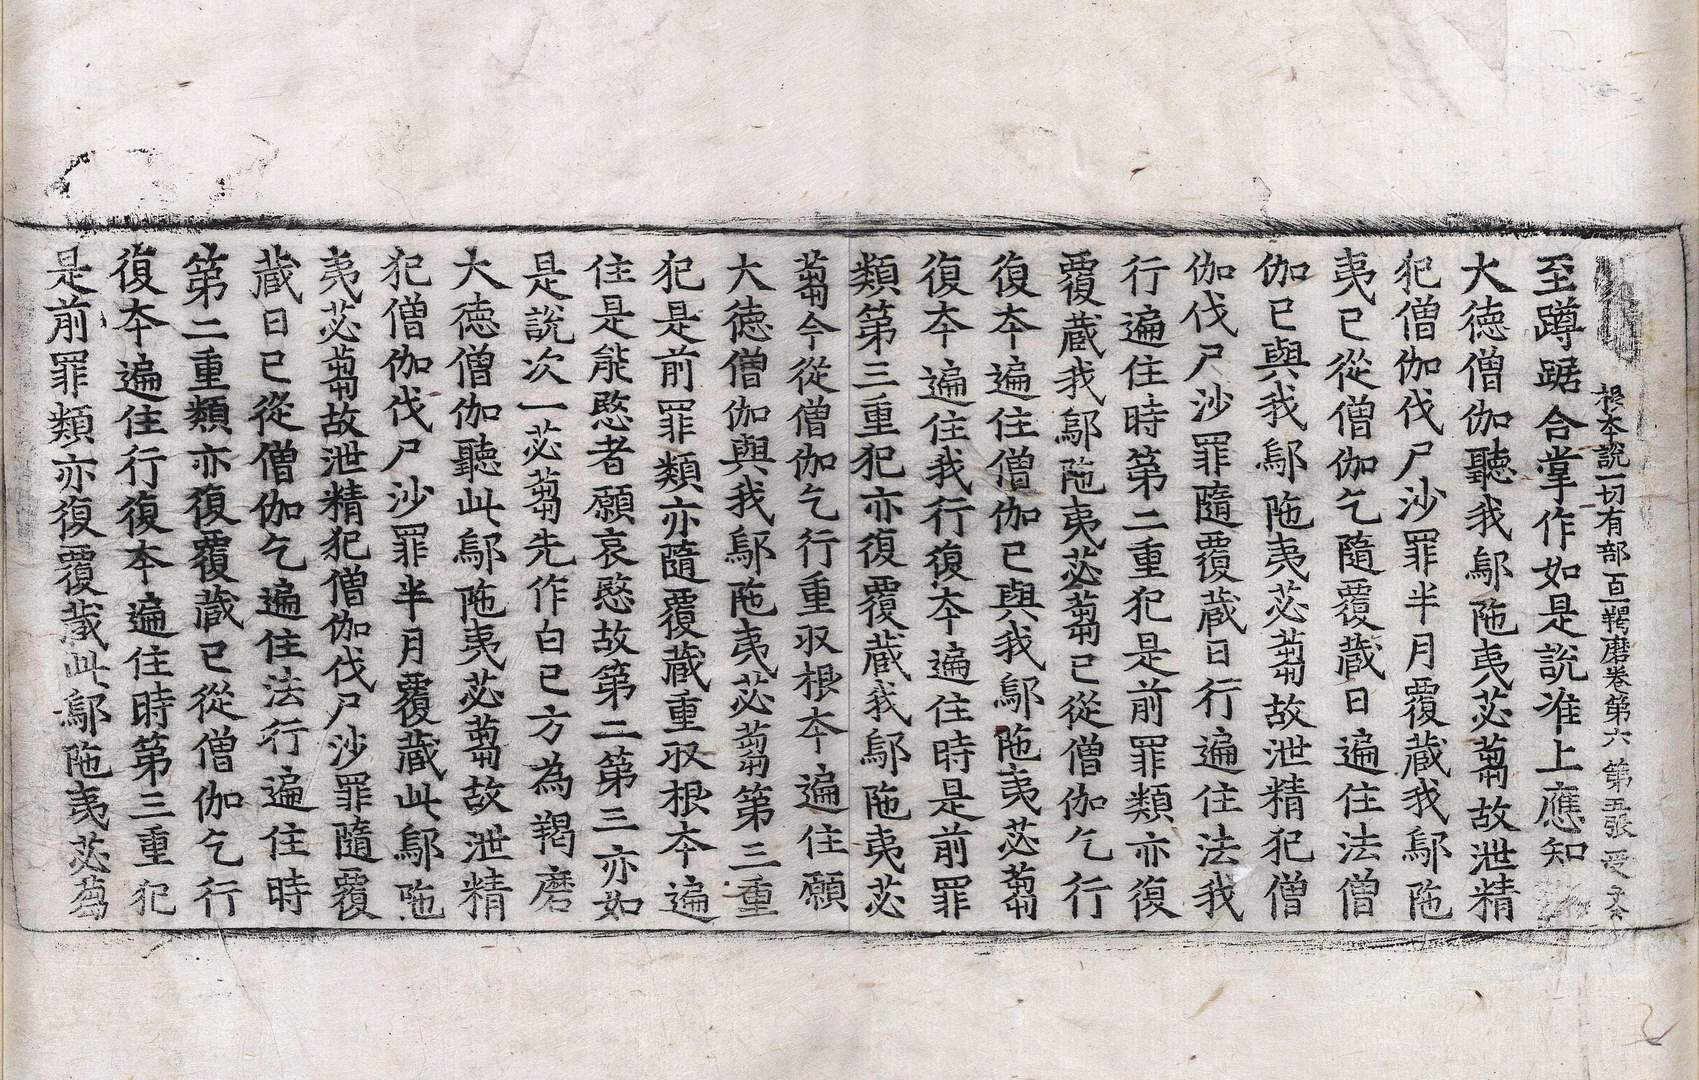 根本說一切有部百一羯磨卷第六 第五張 受
至蹲踞合掌作如是說准上應知
大德僧伽聽我鄔陁夷苾蒭故泄精
犯僧伽伐尸沙罪半月覆藏我鄔陁
夷已從僧伽乞隨覆藏日遍住法僧
伽已與我鄔陁夷苾蒭故泄精犯僧
伽伐尸沙罪隨覆藏日行遍住法我
行遍住時第二重犯是前罪類亦復
覆藏我鄔陁夷苾蒭已從僧伽乞行
復夲遍住僧伽已與我鄔陁夷苾蒭
復夲遍住我行復夲遍住時是前罪
類第三重犯亦復覆藏我鄔陁夷苾
蒭今從僧伽乞行重収根夲遍住願
大德僧伽與我鄔陁夷苾蒭第三重
犯是前罪類亦隨覆藏重収根夲遍
住是能愍者願哀愍故第二第三亦如
是說次一苾蒭先作白已方為羯磨
大德僧伽聽此鄔陁夷苾蒭故泄精
犯僧伽伐尸沙罪半月覆藏此鄔陁
夷苾蒭故泄精犯僧伽伐尸沙罪隨覆
藏日已從僧伽乞遍住法行遍住時
第二重類亦復覆藏已從僧伽乞行
復夲遍住行復夲遍住時第三重犯
是前罪類亦復覆藏此鄔陁夷苾蒭